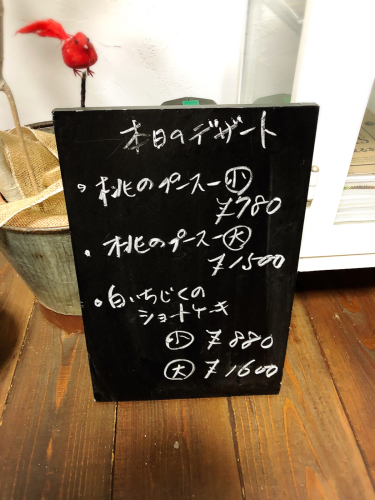 本日のデザート
・桃のプースー㊛
¥780
・桃のプースー㊤
¥1500
・白いちじくの
ショートケーキ
㊛ ¥880
㊤ ¥1600